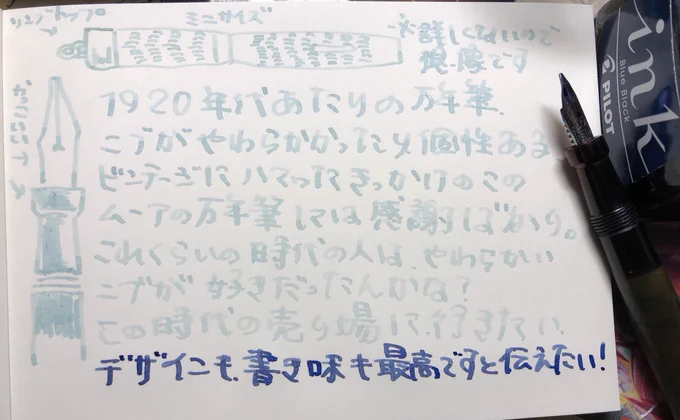 リングトップ。
ミニサイズ
※詳しくないので
想像です
かっこいい
1920年代あたりの万年筆。
ニブがやわらかかったり、個性ある。
ビンテージにハマったきっかけのこの
ムーアの万年筆には感謝ばかり。
これくらいの時代の人は、やわらかい
ニブが好きだったんかな?
この時代の売り場に行きたい
デザインも、書き味も最高ですと伝えたい!
ink
Blue Black
PILOT